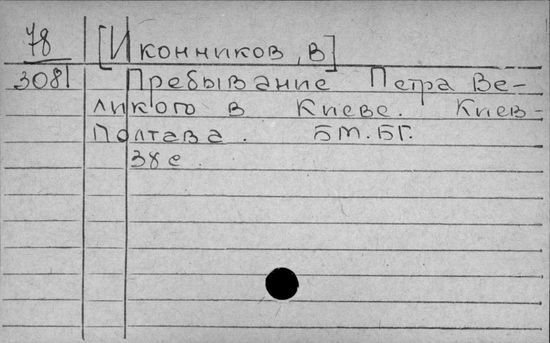 78 [Иконников, В]
3081 Пребывание Петра Ве-
ликого в Киеве. Киев-
Полтава. БМ. БГ.
38 с.